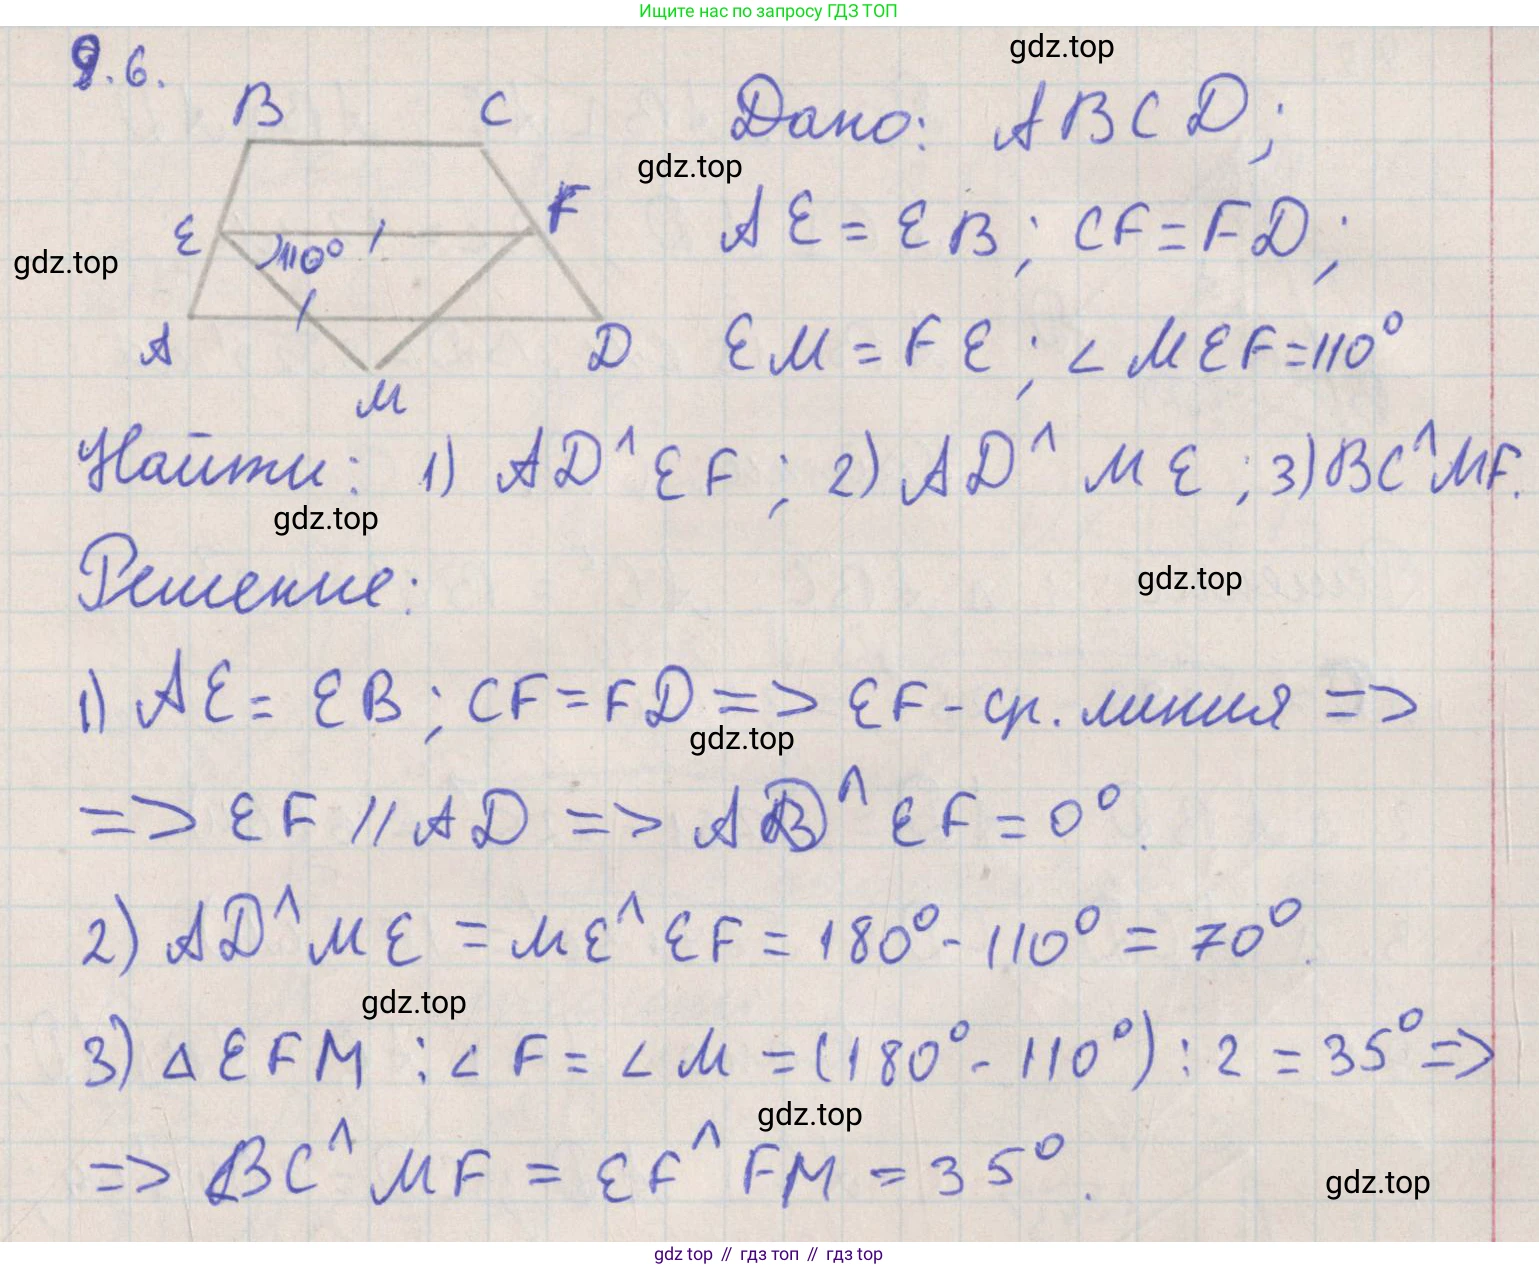 Ищите нас по запросу ГДЗ ТОП
9.6.
gdz.top
B C
Дано: ABCD;
gdz.top
E F
110°
AE = EB; CF = FD;
gdz.top
A D
M
EM = FE; ∠MEF = 110°
Найти: 1) AD^EF; 2) AD^ME; 3) BC^MF.
gdz.top
Решение:
gdz.top
1) AE = EB; CF = FD => EF - ср. линия =>
gdz.top
=> EF // AD => AD^EF = 0°.
2) AD^ME = ME^EF = 180° - 110° = 70°.
gdz.top
3) △EFM: ∠F = ∠M = (180° - 110°) : 2 = 35° =>
gdz.top
=> BC^MF = EF^FM = 35°.
gdz.top
gdz top // гдз топ // gdz top